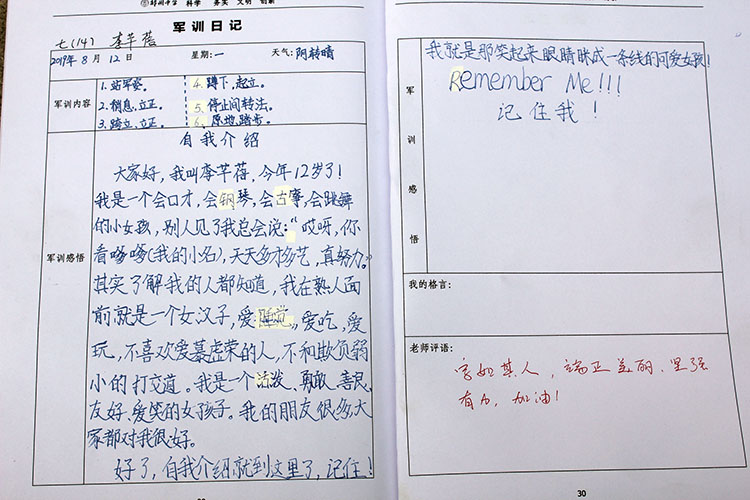 郑州中学 科学 务实 文明 创新
军训日记
七(14) 李芊蓓
2019年8月12日 星期:一 天气:阴转晴
军训内容
1.站军姿。 4.蹲下,起立。
2.稍息、立正。 5.停止间转法。
3.跨立、立正。 6.原地踏步。
军训感悟
自我介绍
大家好,我叫李芊蓓,今年12岁了!
我是一个会口才,会钢琴,会古筝,会跳舞
的小女孩,别人见了我总会说:“哎呀,你
看嗲嗲(我的小名),天天多才多艺,真努力。”
其实了解我的人都知道,我在熟人面
前就是一个女汉子,爱睡觉,爱吃,爱
玩,不喜欢爱慕虚荣的人,不和欺负弱
小的打交道。我是一个活泼、勇敢、善良、
友好、爱笑的女孩子。我的朋友很多,大
家都对我很好。
好了,自我介绍就到这里了,记住!
军训感悟
我就是那笑起来眼睛眯成一条线的可爱女孩!
Remember Me!!!
记住我!
我的格言:
老师评语:
字如其人,端正美丽、坚强
有力,加油!
30